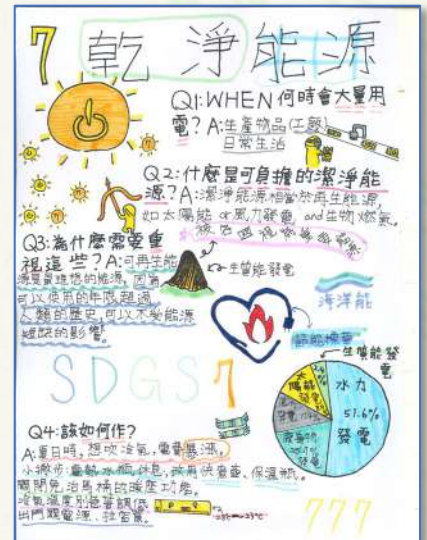 7 乾淨能源
Q1:WHEN何時會大量用
電?A:生產物品(工廠)
日常生活
Q2:什麼是可負擔的潔淨能
源?A:潔淨能源相當於再生能源,
如太陽能 or 風力發電, and生物燃氣,
Q3:為什麼需要重
視這些?A:可再生能
源是最理想的能源,因為
可以使用的年限超過
人類的歷史,可以不受能源
短缺的影響。
生質能發電
海洋能
節能標章
SDGS7
生質能發
電
太
陽能
發電
水力
51.6%
發電
廢棄物
發電
Q4:該如何作?
A:夏日時,想吹冷氣,電費暴漲。
小撇步:
保溫瓶。
關閉免治馬桶的暖座功能。
冷氣溫度別過著調低
出門關電源、拉窗簾。
777